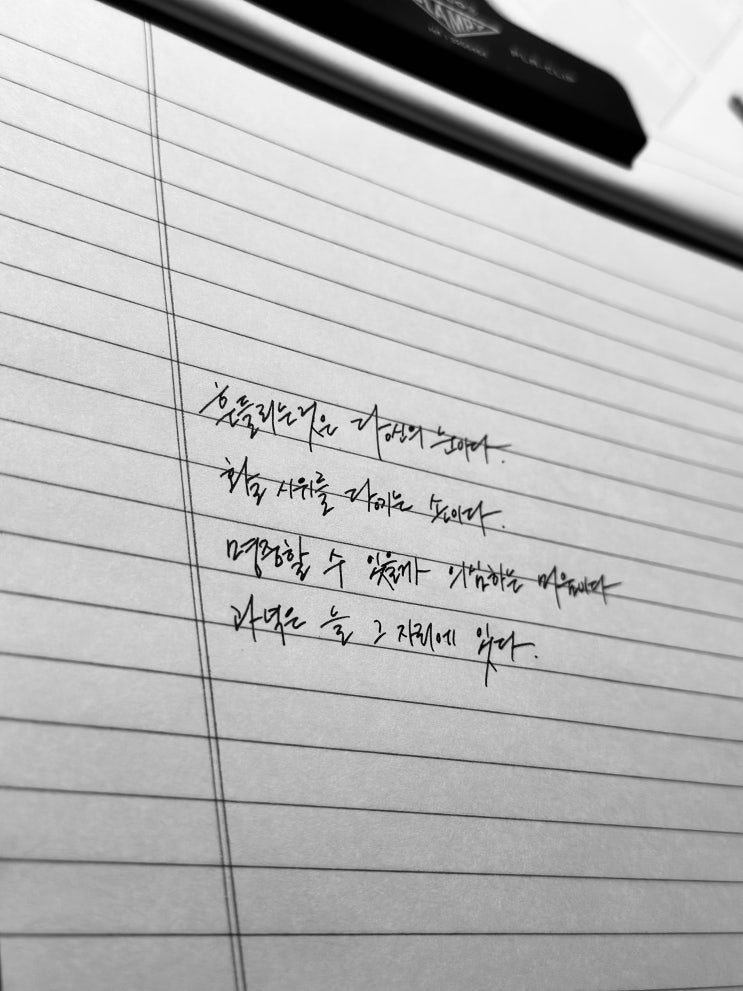 LAMPS
흔들리는 것은 당신의 눈이다.
활을 시위를 당기는 손이다.
명중할 수 있을까 의심하는 마음이다
과녁은 늘 그 자리에 있다.